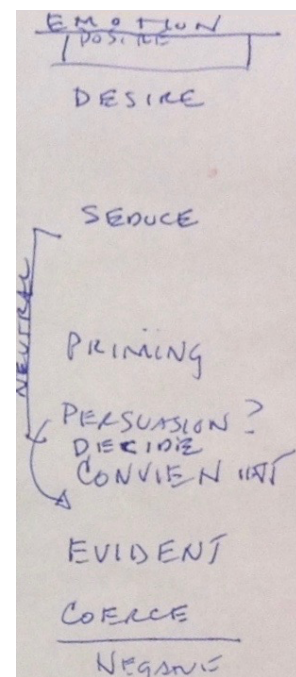 EMOTION
POSITIVE
DESIRE
SEDUCE
NEUTRAL
PRIMING
PERSUASION?
DECIDE
EVIDENT
COERCE
NEGATIVE